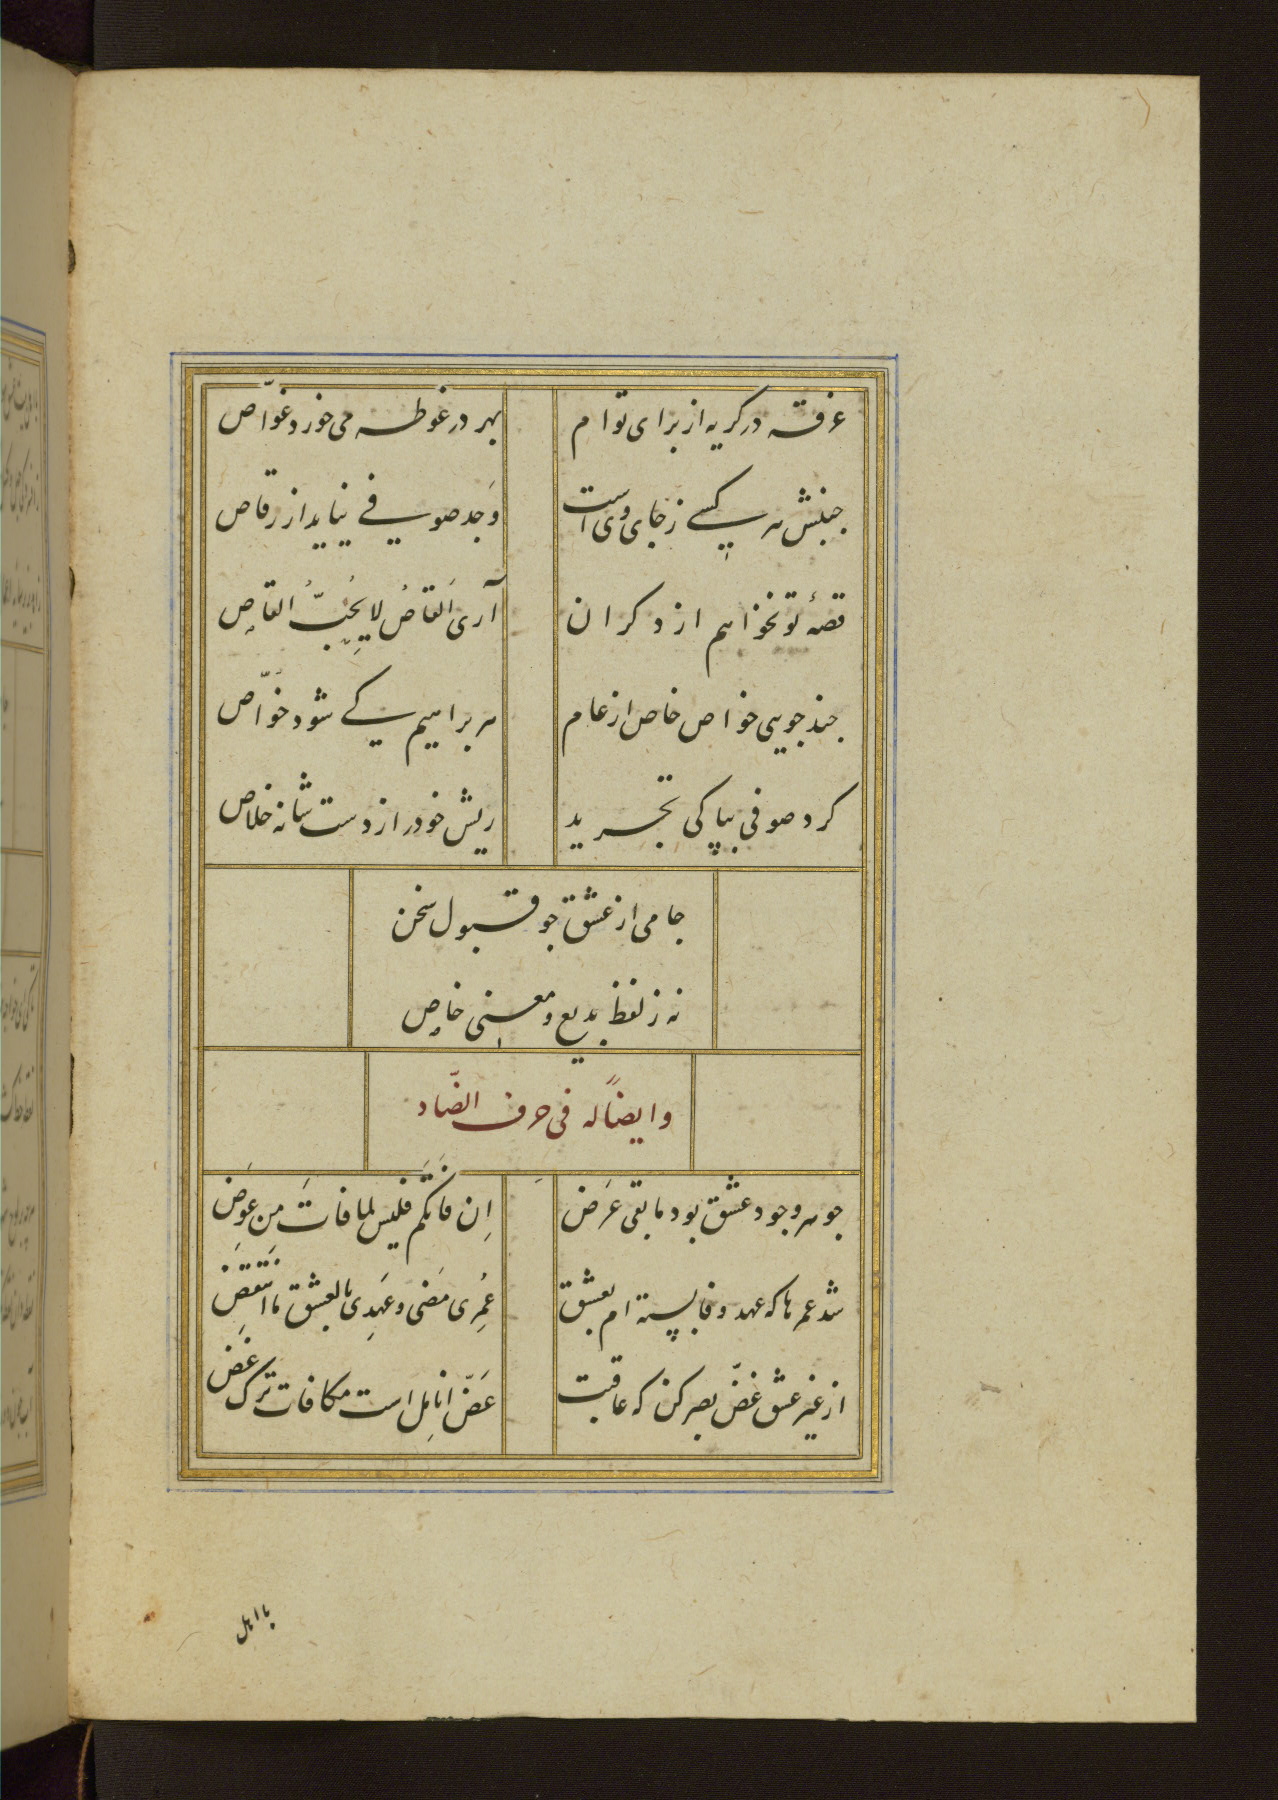 غرقه در گریه از برای توام
بهر در غوطه می خورد غوّاص
جنبش هر کسی ز جای وی است
وَجد صوفی نیاید از رقاص
قصهٔ تو نخواهم از دکران
آری اَلقاصُ لا یُحِبُّ القاص
چند جویی خواص خاص از عام
هر براهیم کی شود خوّاص
کرد صوفی بپاکی تجرید
ریش خود را ز دست شانه خلاص
جامی از عشق جو قبول سخن
نه ز لفظ بدیع و معنی خاص
وایضاً له فی حرف الضّاد
جوهر وجود عشق بود ما بقی عَرَض
اِن فاتَکُم فلیس لما فاتَ من عِوَض
شد عمرها که عهد وفا بسته ام بعشق
عُمری مَضی و عَهدِی بالعشق ما انتَقَض
از غیر عشق غضّ بصر کن که عاقبت
عَضّ انامِل است مکافات ترک غض
با اهل